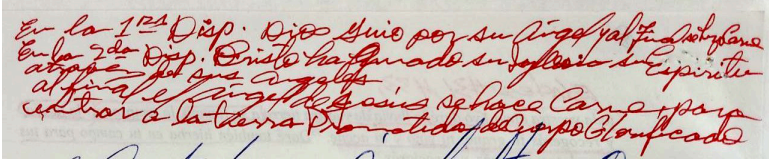 En la 1ra Disp. Dios Guio por su Angel y al Fin se hizo Carne
En la 2da Disp. Cristo ha Guiado su Iglesia su Espiritu
atraves de sus Angeles
al final el Angel de Jesús se hace Carne, para
entrar a la tierra Prometida, del cuerpo Glorificado